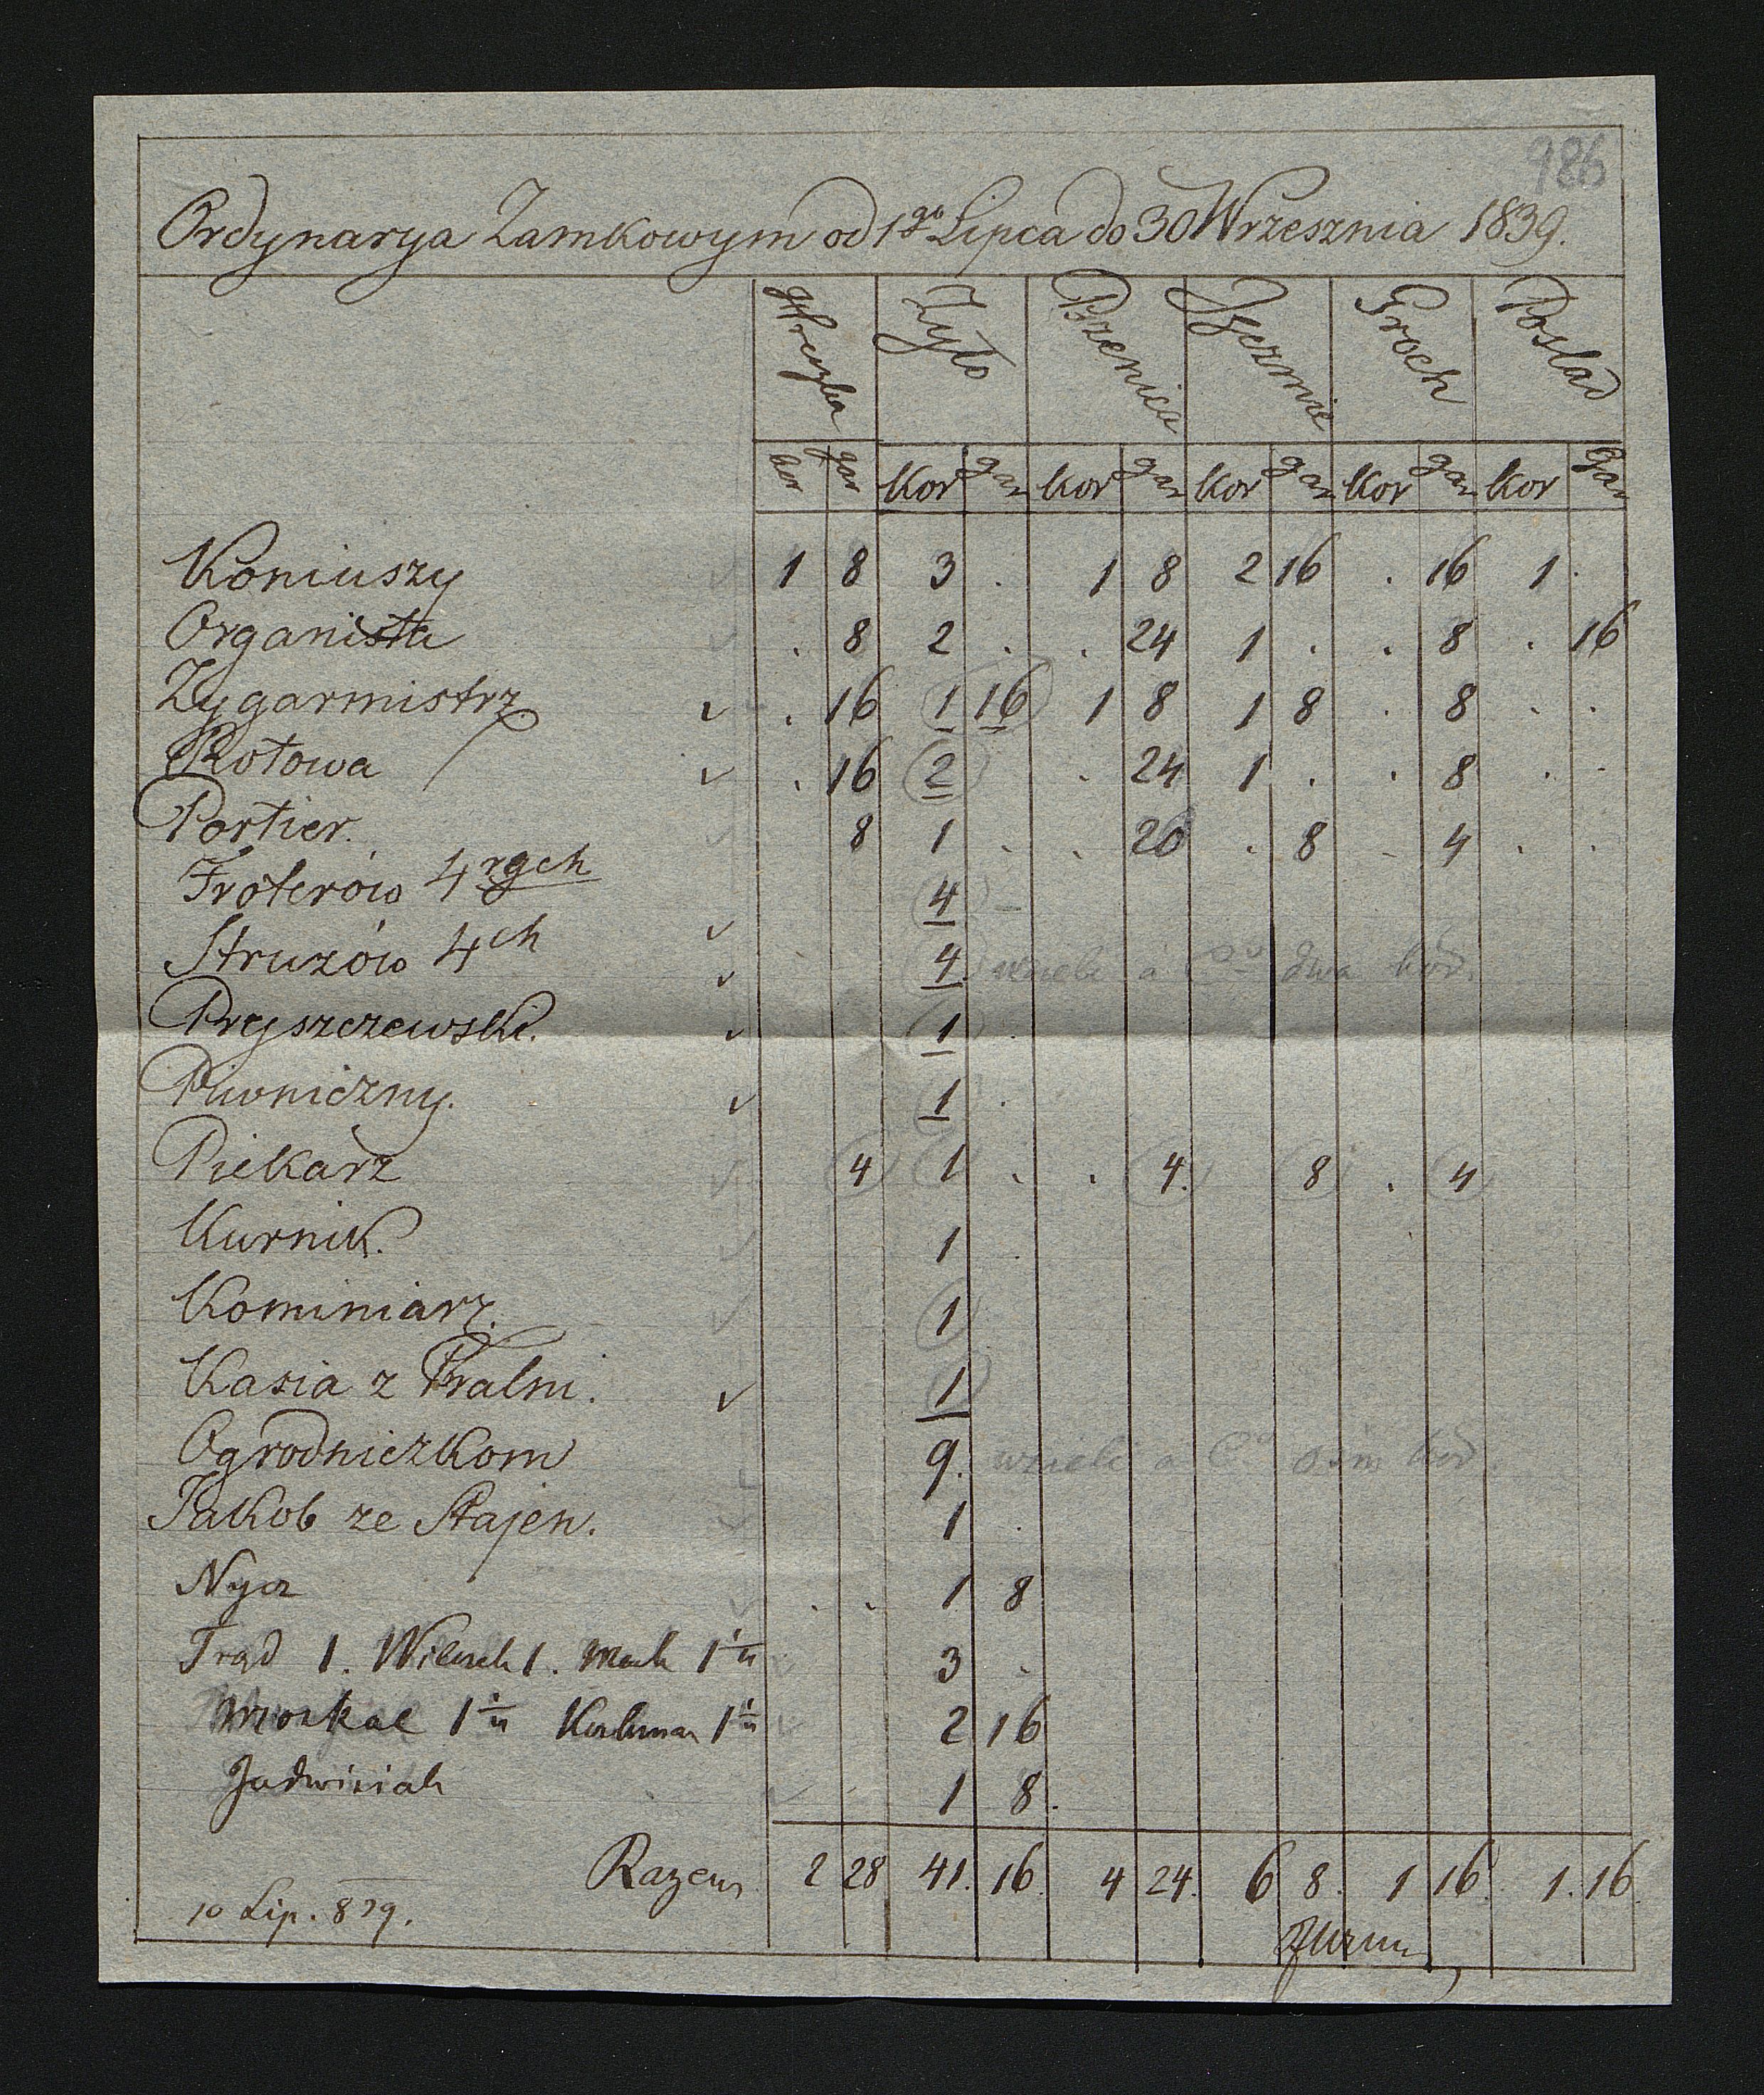 986
Ordynarya Zamkowym od 1go Lipca do 30 Wrzesznia 1839.
Hreczka Zyto Pszenica Jęczmie Groch Poslad
kor gar kor gar kor gar kor gar kor gar kor gar
Koniuszy 1 8 3 . 1 8 2 16 . 16 1 .
Organista . 8 2 . . 24 1 . . 8 . 16
Zygarmistrz . 16 1 16 1 8 1 8 . 8 . .
Rotowa . 16 2 . 24 1 . . 8 . .
Portier. 8 1 . . 20 . 8 . 4 . .
Froterów 4rych 4 -
Struzów 4ch 4. wzieli a dwa kor.
Pryszczewski. 1 .
Piwniczny. 1 .
Piekarz 4 1 . . 4. 8 . 4
Kurnik. 1 .
Kominiarz. 1
Kasia z Pralni. 1
Ogrodniczkom 9. wzieli a osim kor.
Jakob ze Stajen. 1 .
. . 1 8
1. 1. 1 3 .
1 1 2 16
Jadwisiak 1 8.
Razem 2 28 41. 16. 4 24. 6 8. 1 16. 1. 16.
10 Lip. 839.